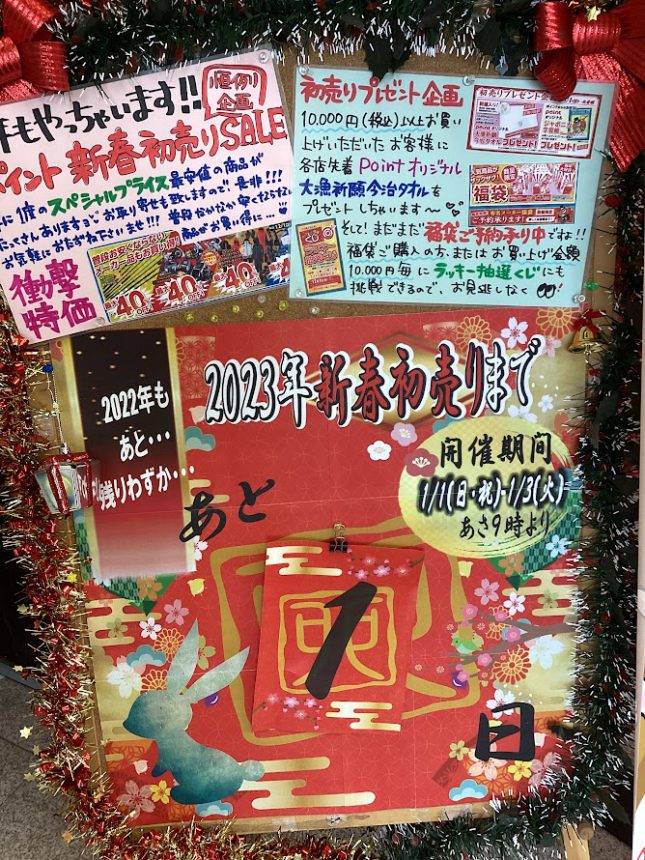 もやっちゃいます!!
恒例
企画
ポイント 新春初売りSALE
スペシャルプライス 最安値の商品が
たくさんありますよ お取り寄せも致しますので 是非!!!
お気軽におたずね下さいませ!!
商品がお買い得に…
衝撃
特価
普段お安くならない
メーカー品もお買い得
40
40
40
初売りプレゼント企画
10,000円(税込)以上お買い
上げいただいたお客様に
各店先着 Pointオリジナル
大漁祈願今治タオルを
プレゼントしちゃいます〜
そして!まだまだ福袋ご予約承り中ですよ!!
福袋ご購入の方、またはお買い上げ金額
10,000円毎にラッキー抽選くじにも
挑戦できるので、お見逃しなく
初売りプレゼント
プレゼント!
プレゼント!
福袋
2022年も
あと…
残りわずか…
2023年新春初売りまで
開催期間
1/1(日・祝)-1/3(火)
あさ9時より
あと
1
日